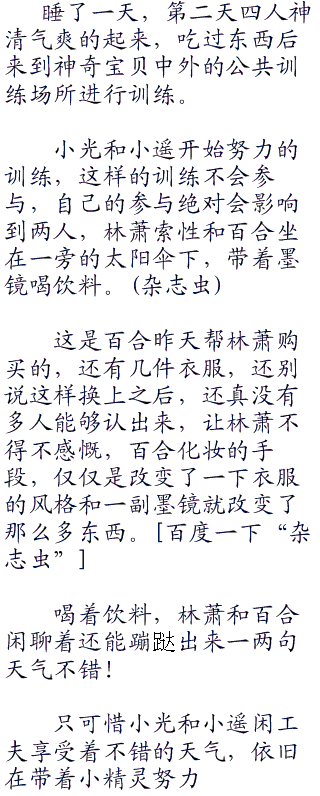 睡了一天，第二天四人神
清气爽的起来，吃过东西后
来到神奇宝贝中外的公共训
练场所进行训练。
小光和小遥开始努力的
训练，这样的训练不会参
与，自己的参与绝对会影响
到两人，林萧索性和百合坐
在一旁的太阳伞下，带着墨
镜喝饮料。(杂志虫)
这是百合昨天帮林萧购
买的，还有几件衣服，还别
说这样换上之后，还真没有
多人能够认出来，让林萧不
得不感慨，百合化妆的手
段，仅仅是改变了一下衣服
的风格和一副墨镜就改变了
那么多东西。[百度一下“杂
志虫”]
喝着饮料，林萧和百合
闲聊着还能蹦跶出来一两句
天气不错！
只可惜小光和小遥闲工
夫享受着不错的天气，依旧
在带着小精灵努力